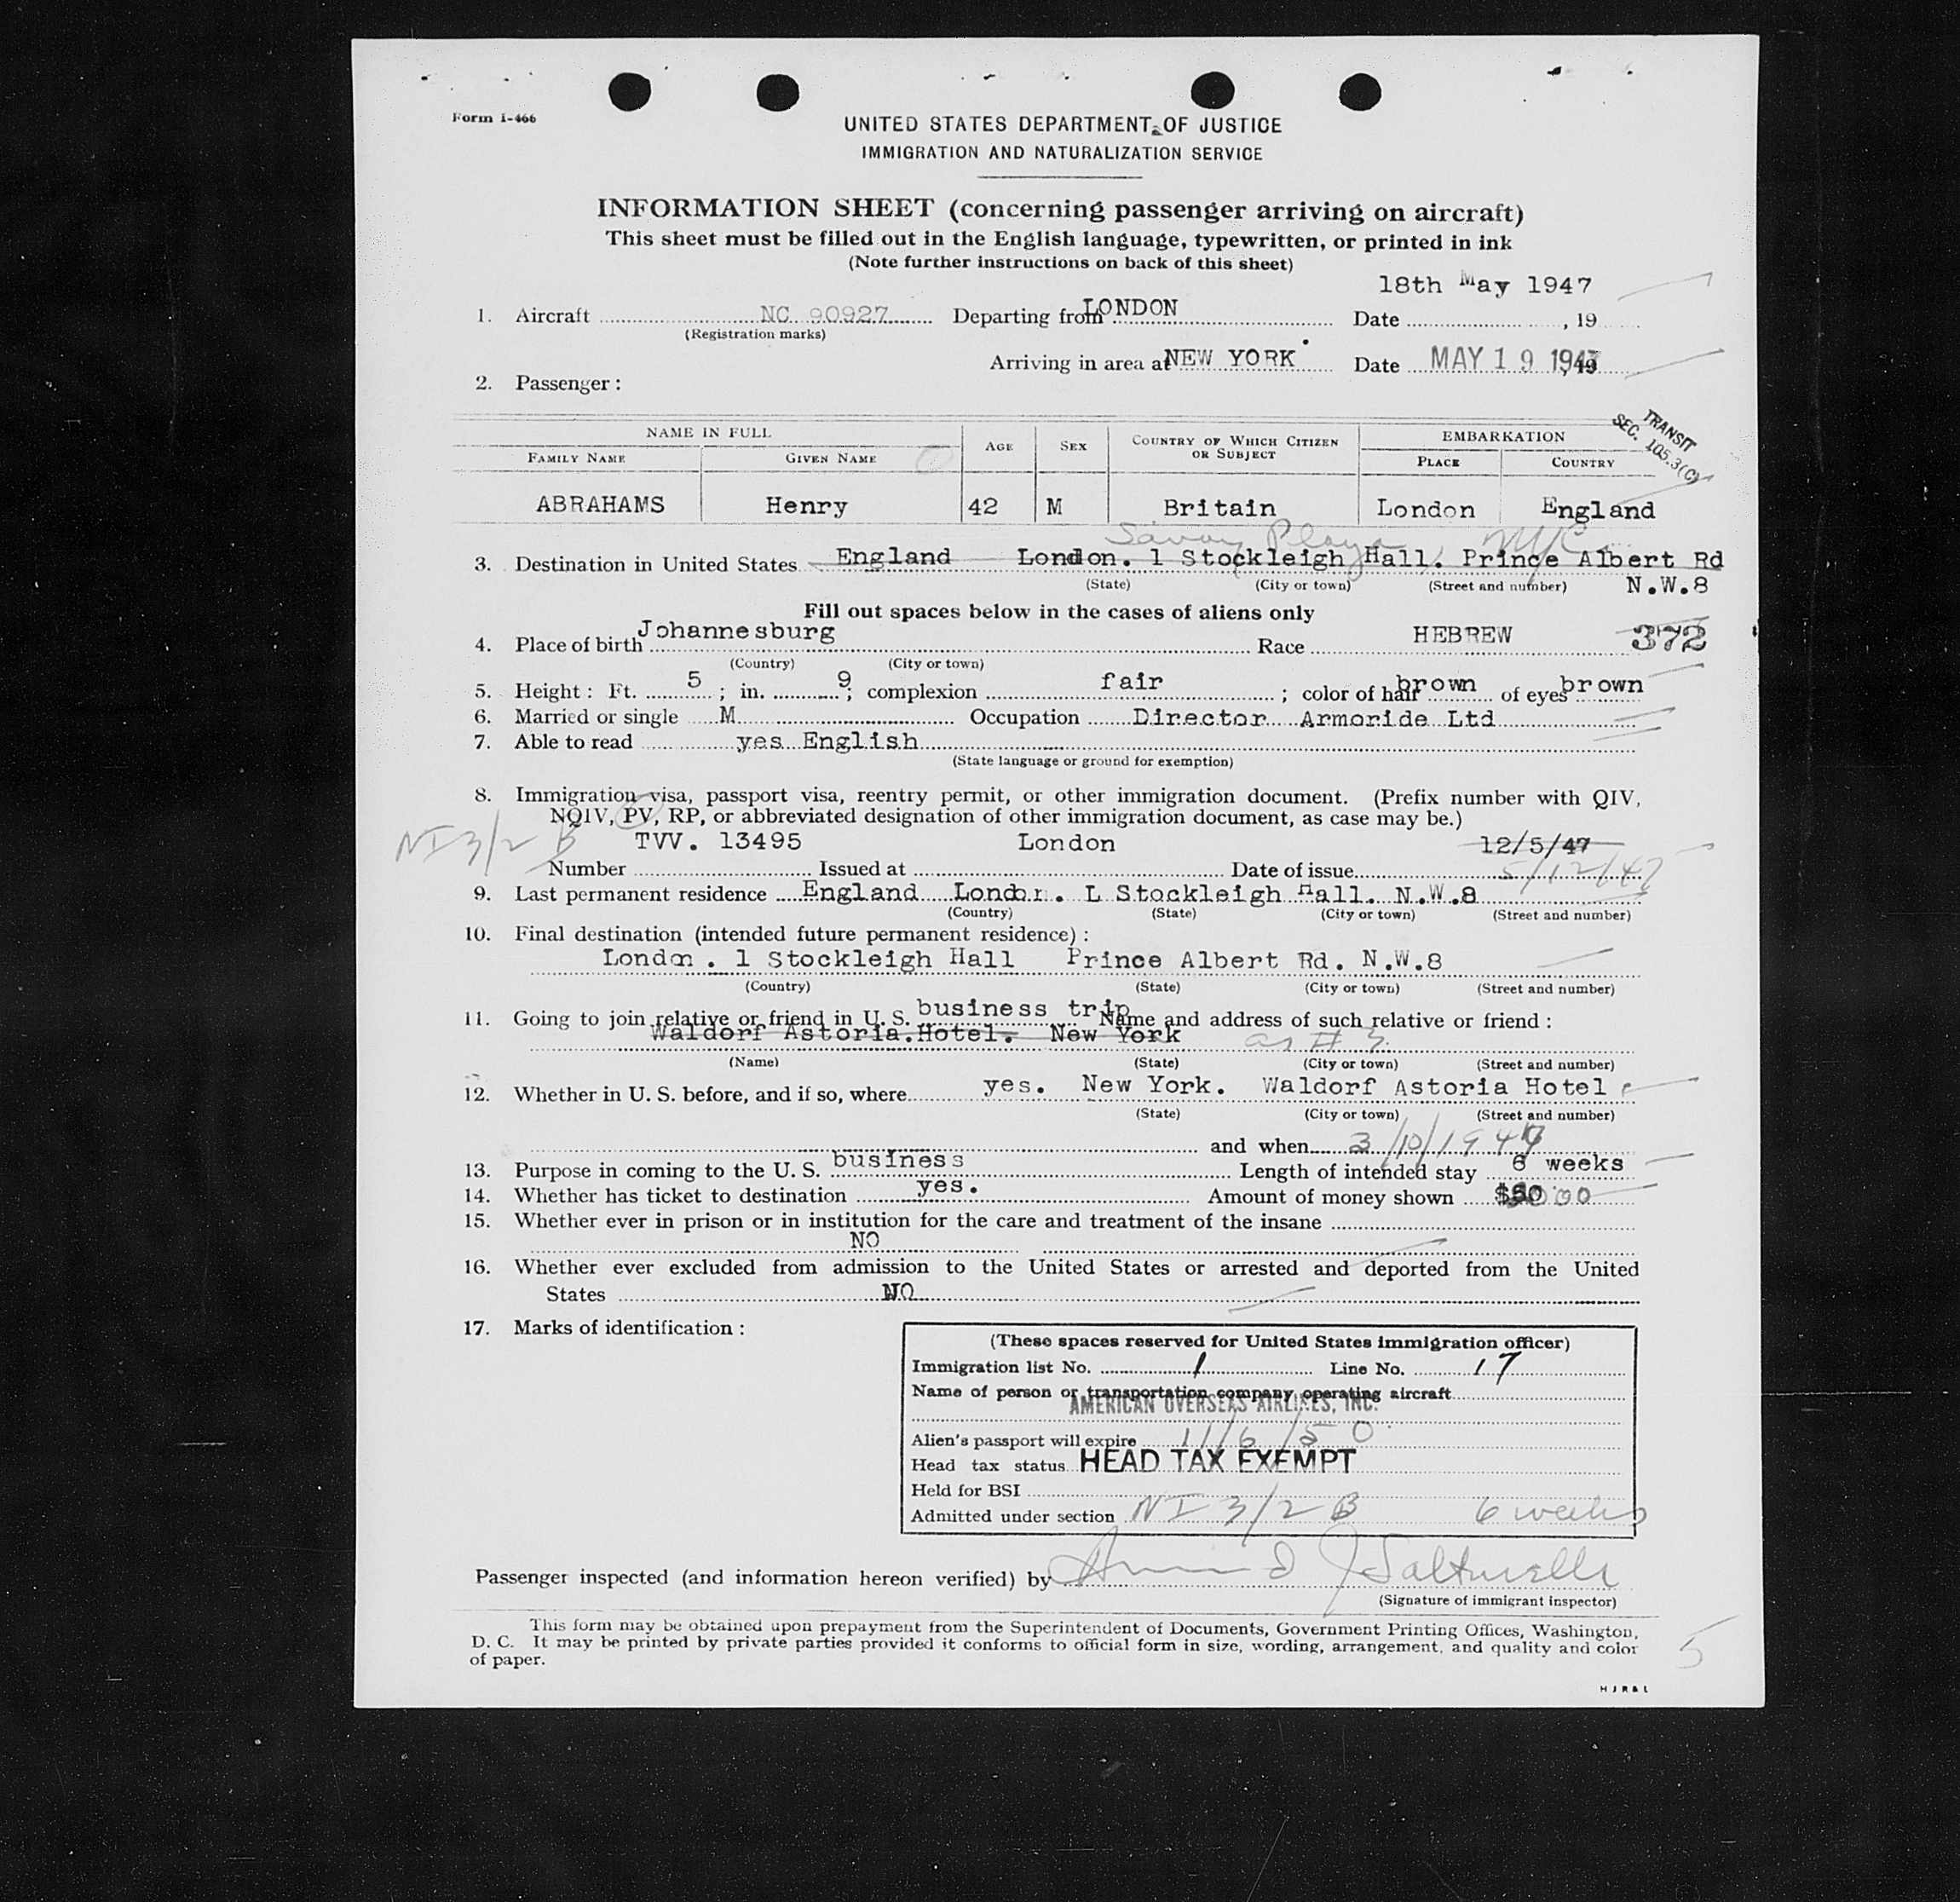 Form I-466
UNITED STATES DEPARTMENT OF JUSTICE
IMMIGRATION AND NATURALIZATION SERVICE
INFORMATION SHEET (concerning passenger arriving on aircraft)
This sheet must be filled out in the English language, typewritten, or printed in ink
(Note further instructions on back of this sheet)
18th May 1947
1. Aircraft NC 90927 Departing from LONDON Date , 19
(Registration marks)
Arriving in area at NEW YORK Date MAY 19 1947
2. Passenger:
TRANSIT
SEC. 105.3(C)
NAME IN FULL AGE SEX COUNTRY OF WHICH CITIZEN OR SUBJECT EMBARKATION
FAMILY NAME GIVEN NAME PLACE COUNTRY
ABRAHAMS Henry 42 M Britain London England
Savoy Plaza, NYC
3. Destination in United States England London. 1 Stockleigh Hall. Prince Albert Rd
(State) (City or town) (Street and number) N.W.8
Fill out spaces below in the cases of aliens only
4. Place of birth Johannesburg Race HEBREW 372
(Country) (City or town)
5. Height: Ft. 5; in. 9; complexion fair; color of hair brown of eyes brown
6. Married or single M Occupation Director Armoride Ltd
7. Able to read yes English
(State language or ground for exemption)
8. Immigration visa, passport visa, reentry permit, or other immigration document. (Prefix number with QIV,
NQIV, PV, RP, or abbreviated designation of other immigration document, as case may be.)
NI 3/2 B TVV. 13495 London 12/5/47
Number Issued at Date of issue 5/12/47
9. Last permanent residence England London. L Stockleigh Hall. N.W.8
(Country) (State) (City or town) (Street and number)
10. Final destination (intended future permanent residence):
London. 1 Stockleigh Hall Prince Albert Rd. N.W.8
(Country) (State) (City or town) (Street and number)
11. Going to join relative or friend in U. S. business trip Name and address of such relative or friend:
Waldorf Astoria.Hotel. New York as # 3
(Name) (State) (City or town) (Street and number)
12. Whether in U. S. before, and if so, where yes. New York. Waldorf Astoria Hotel
(State) (City or town) (Street and number)
and when 3/10/194
13. Purpose in coming to the U. S. business Length of intended stay 6 weeks
14. Whether has ticket to destination yes. Amount of money shown
15. Whether ever in prison or in institution for the care and treatment of the insane
NO
16. Whether ever excluded from admission to the United States or arrested and deported from the United
States NO
17. Marks of identification:
(These spaces reserved for United States immigration officer)
Immigration list No. 1 Line No. 17
Name of person or transportation company operating aircraft
AMERICAN OVERSEAS AIRLINES, INC.
Alien's passport will expire 11/6/50
Head tax status HEAD TAX EXEMPT
Held for BSI
Admitted under section NI 3/2 B 6 weeks
Passenger inspected (and information hereon verified) by
(Signature of immigrant inspector)
This form may be obtained upon prepayment from the Superintendent of Documents, Government Printing Offices, Washington,
D. C. It may be printed by private parties provided it conforms to official form in size, wording, arrangement, and quality and color
of paper.
5
H J R & L